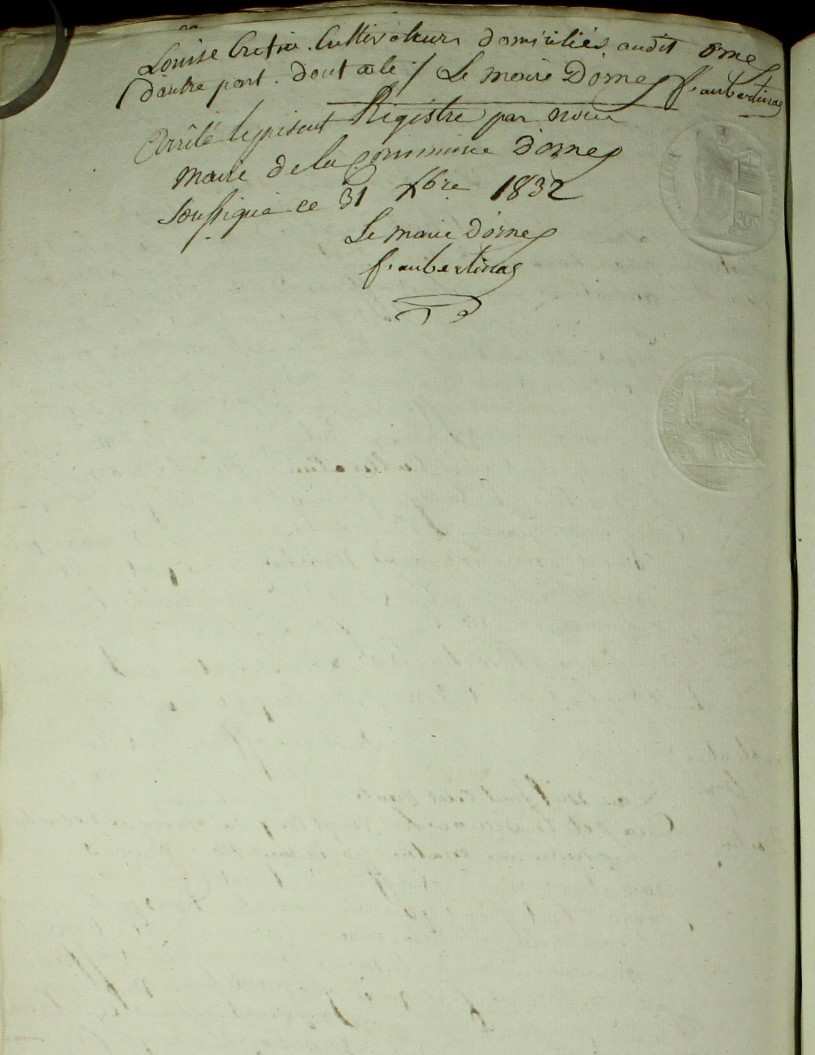 Louise Cretin. Cultivateurs domiciliés audit ornes
d'autre part. dont acte ./ Le maire D'ornes f. aubertinas
Arrêté le présent Régistre par nous
maire de la Commune d'ornes
soussigné ce 31 Xbre 1832
Le maire d'ornes
f. aubertinas